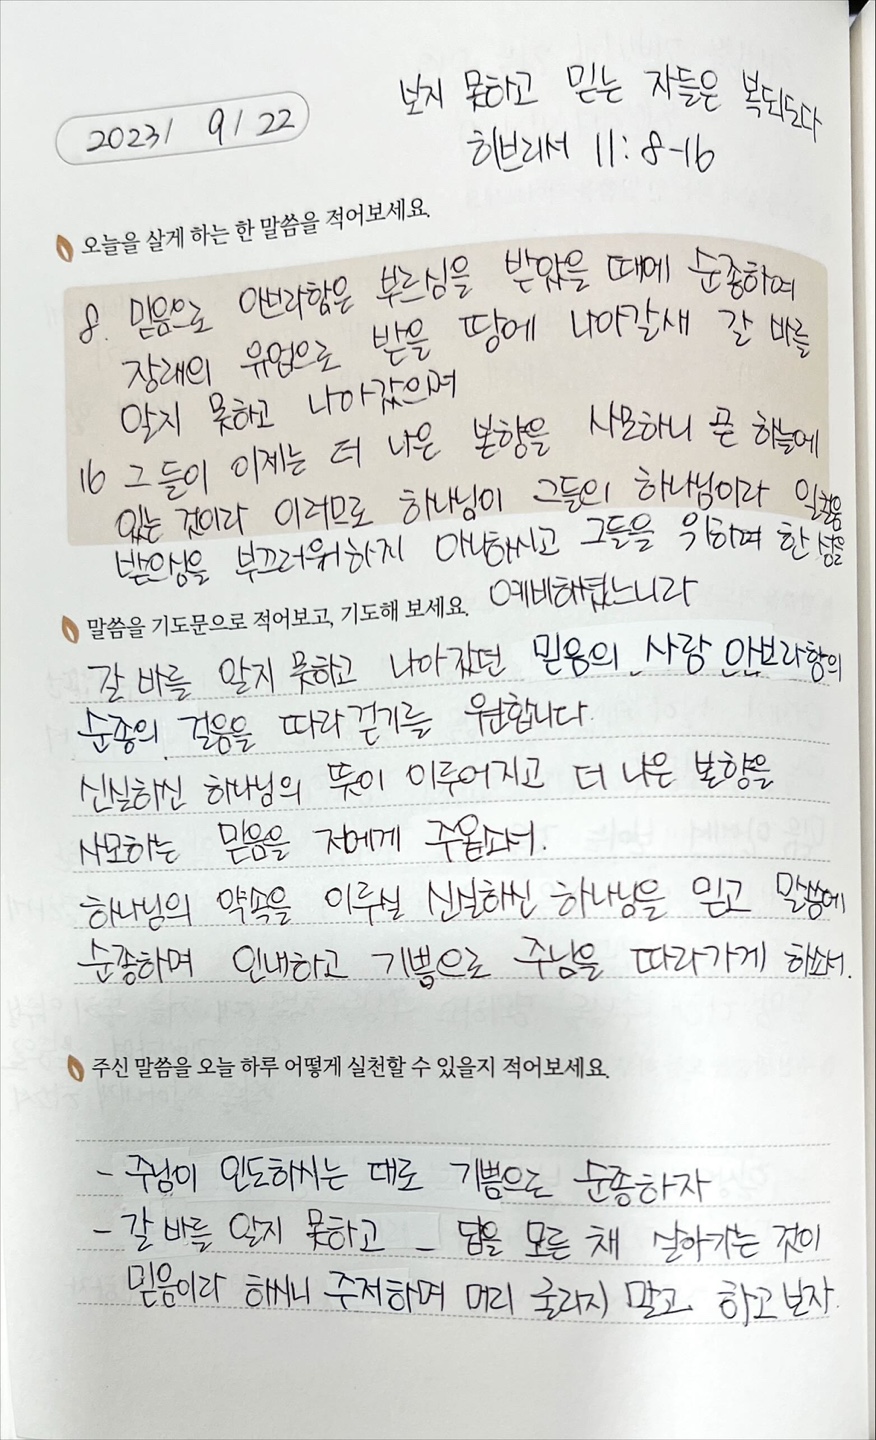 2023/ 9/ 22
보지 못하고 믿는 자들은 복되도다
히브리서 11: 8-16
오늘을 살게 하는 한 말씀을 적어보세요.
8. 믿음으로 아브라함은 부르심을 받았을 때에 순종하여
장래의 유업으로 받을 땅에 나아갈새 갈 바를
알지 못하고 나아갔으며
16 그들이 이제는 더 나은 본향을 사모하니 곧 하늘에
있는 것이라 이러므로 하나님이 그들의 하나님이라 일컬음
받으심을 부끄러워하지 아니하시고 그들을 위하여 한 성을
예비하셨느니라
말씀을 기도문으로 적어보고, 기도해 보세요.
갈 바를 알지 못하고 나아갔던 믿음의 사람 아브라함의
순종의 걸음을 따라 걷기를 원합니다.
신실하신 하나님의 뜻이 이루어지고 더 나은 본향을
사모하는 믿음을 저에게 주옵소서.
하나님의 약속을 이루실 신실하신 하나님을 믿고 말씀에
순종하며 인내하고 기쁨으로 주님을 따라가게 하소서.
주신 말씀을 오늘 하루 어떻게 실천할 수 있을지 적어보세요.
- 주님이 인도하시는 대로 기쁨으로 순종하자
- 갈 바를 알지 못하고 _ 답을 모른 채 살아가는 것이
믿음이라 하시니 주저하며 머리 굴리지 말고 하고보자